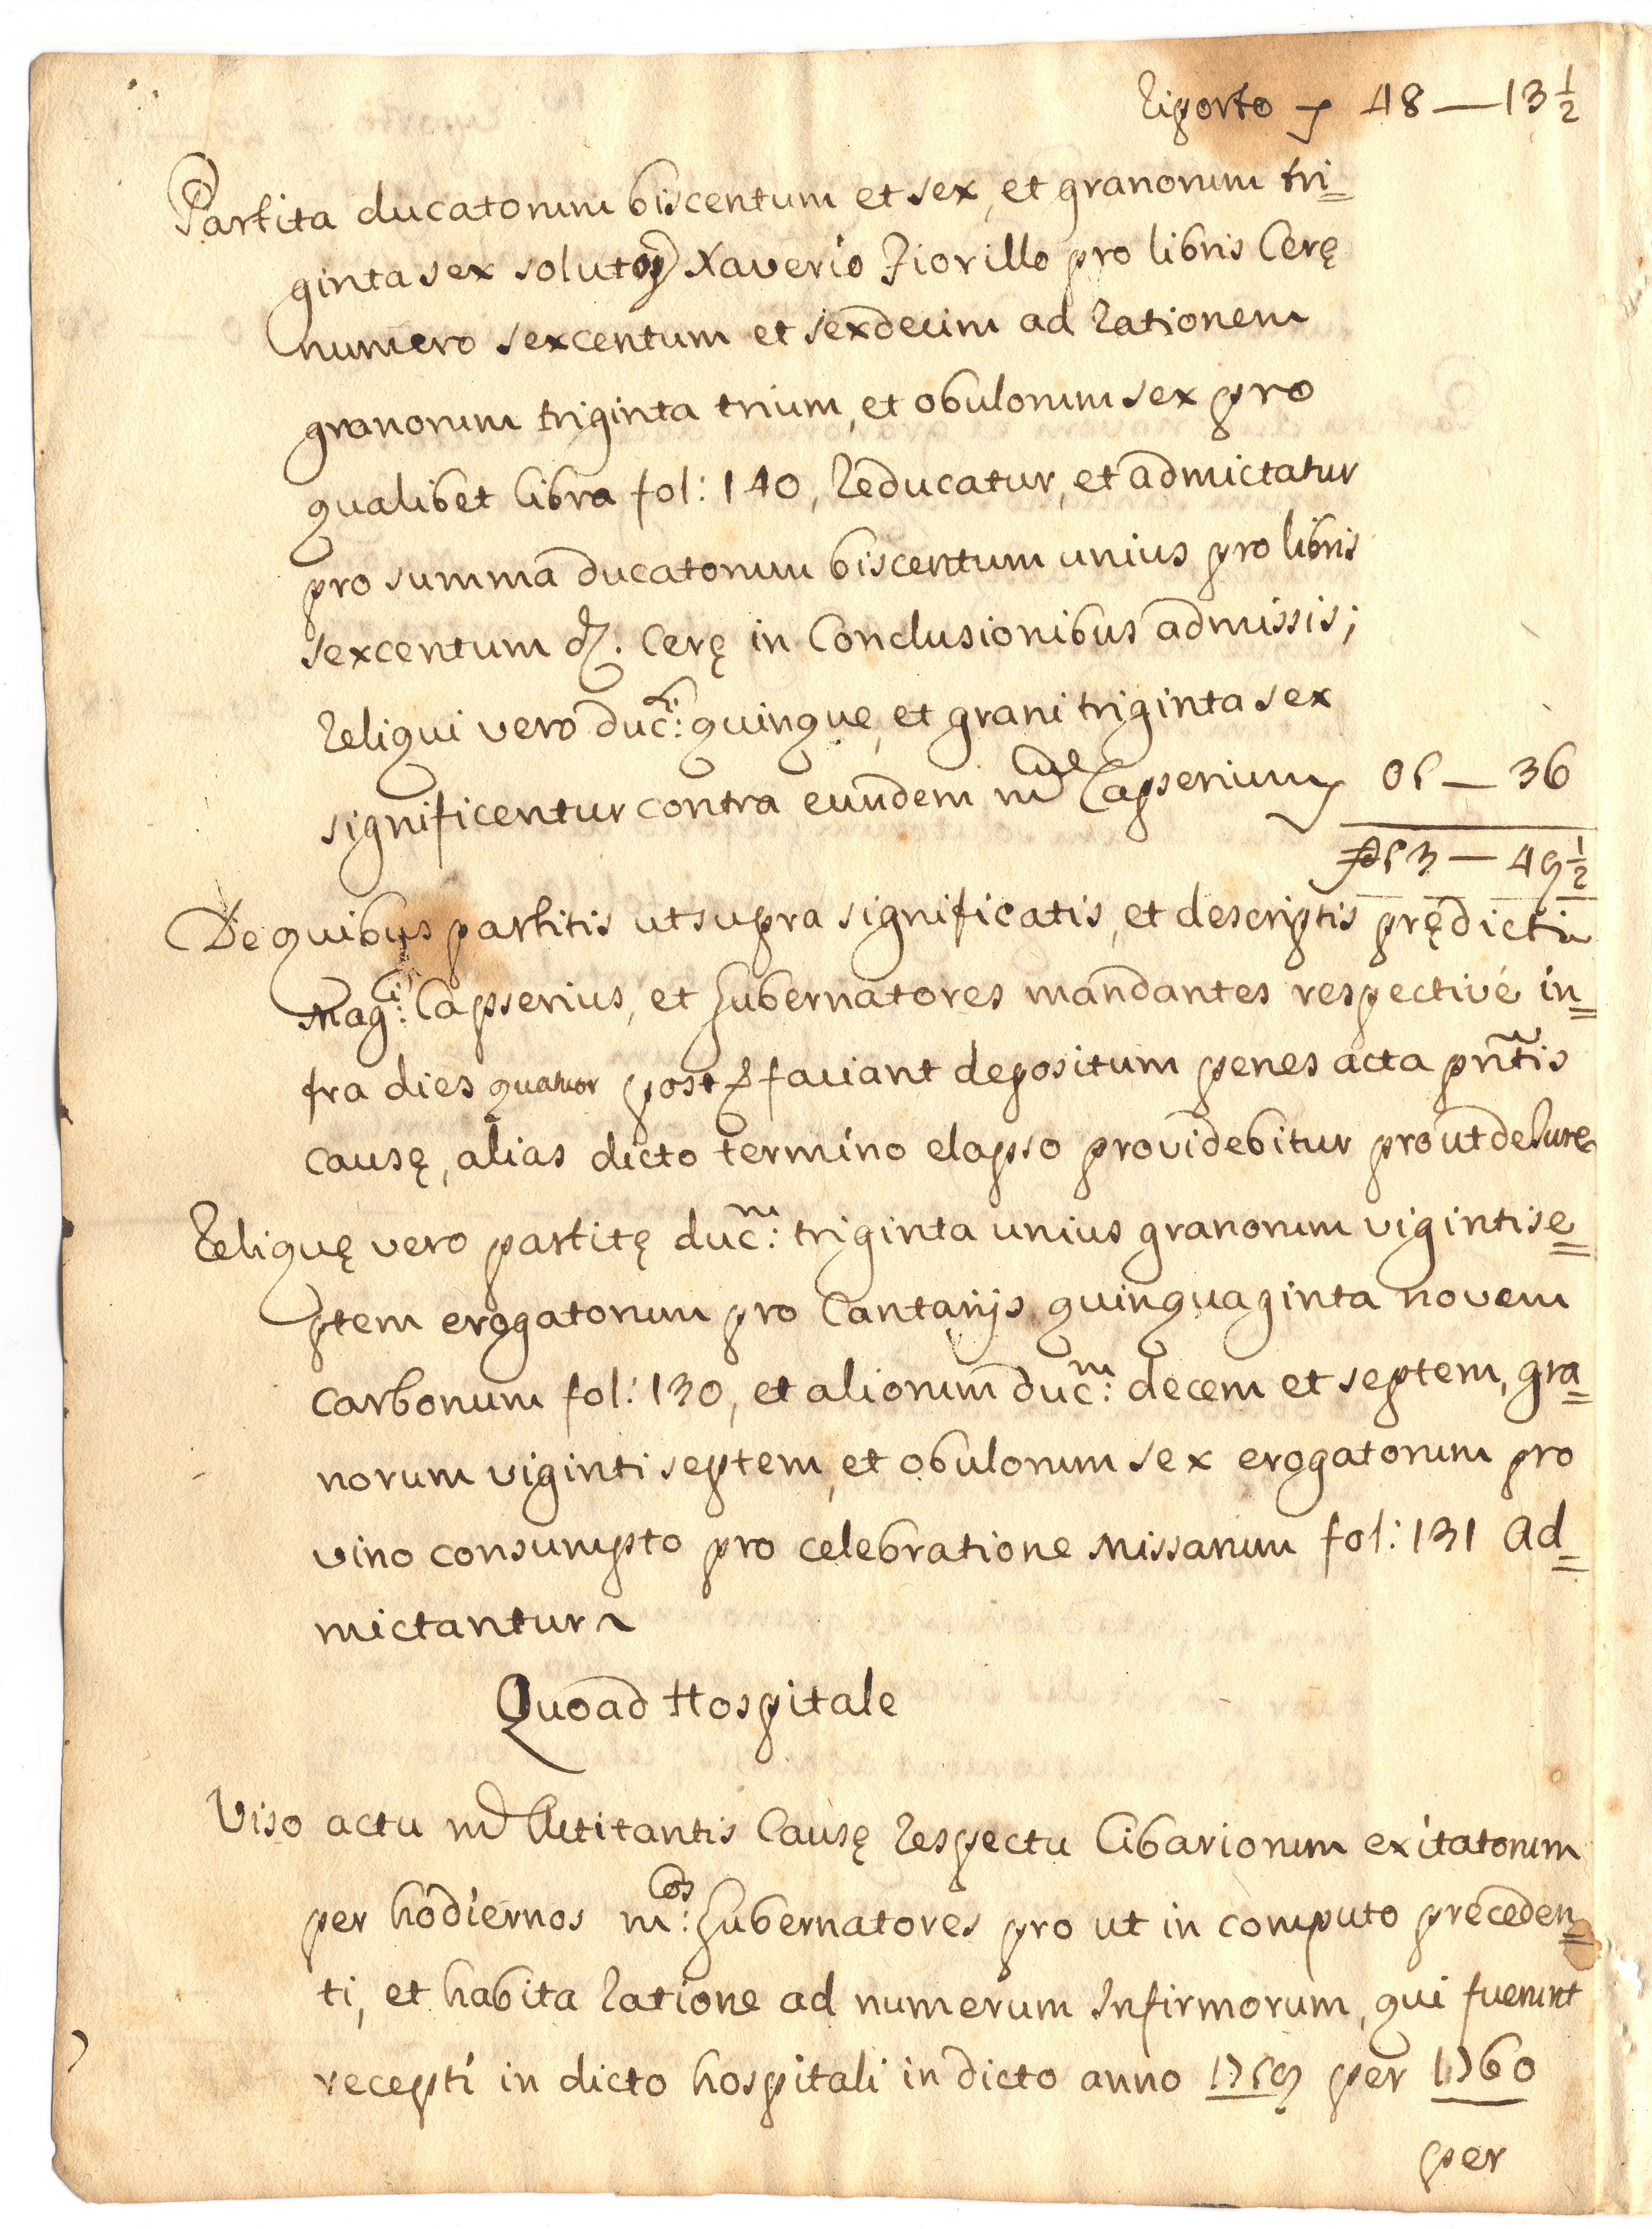 Riporto 48 — 13 ½
Partita ducatorum biscentum et sex, et granorum tri=
ginta sex solutorum Xaverio Fiorillo pro libris Cerę
numero sexcentum et sexdecim ad rationem
granorum triginta trium, et obulorum sex pro
qualibet libra fol: 140, Reducatur, et admictatur
pro summa ducatorum biscentum unius pro libris
sexcentum d. Cerę in Conclusionibus admissis;
Reliqui vero duc:ti quinque, et grani triginta sex
significentur contra eundem m:cum Capserium 05 — 36
53 — 49 ½
De quibus partitis ut supra significatis, et descriptis prędicti
Mag:ci Capserius, et Gubernatores mandantes respectivé in=
fra dies quatuor post faciant depositum penes acta pñtis
causę, alias dicto termino elapso providebitur prout de Iure
Reliquę vero partitę duc:m triginta unius granorum vigintise=
ptem erogatorum pro Cantarijs quinquaginta novem
carbonum fol: 130, et aliorum duc:m decem et septem, gra=
norum viginti septem, et obulorum sex erogatorum pro
vino consumpto pro celebratione Missarum fol: 131 Ad=
mictantur
Quoad Hospitale
Viso actu Actitantis Causę Respectu Cibariorum exitatorum
per hodiernos m:cos Gubernatores pro ut in computo preceden=
ti, et habita Ratione ad numerum Infirmorum, qui fuerunt
recepti in dicto hospitali in dicto anno 1759 per 1760
per